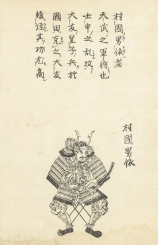 村國男依者
天武之軍将也
壬申之乱攻
大友皇子兵於
瀬田克之大友
縊崩其功尤高
村國男依